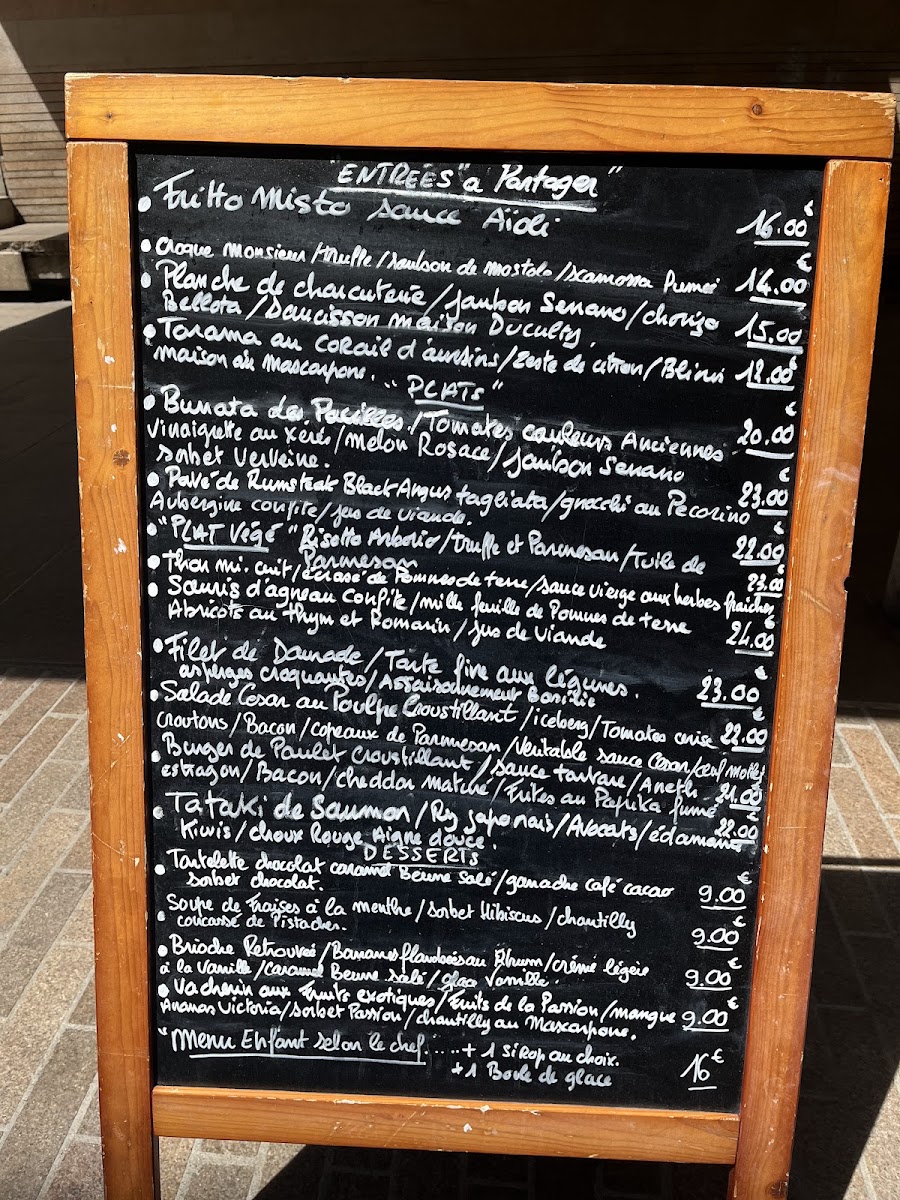 "ENTRÉES" a Partager"
• Fritto Misto sauce Aïoli 16.00€
• Croque Monsieur/truffe/Jambon de Mostolo/scamorza fumée 14.00€
• Planche de charcuterie/Jambon Serrano/chorizo
Bellota/Saucisson maison Duculty. 15.00
• Tarama au corail d'oursins/Zeste de citron/Blinis
maison au mascarpone. 12.00€
"PLATS"
• Burrata des Pouilles/Tomates couleurs Anciennes
vinaigrette au xérès/melon Rosace/Jambon Serrano 20.00€
sorbet Verveine.
• Pavé de Rumsteak Black Angus tagliata/gnocchi au Pecorino 23.00€
Aubergine confite/jus de viande.
• "PLAT Végé" Risotto Arborio/truffe et Parmesan/Tuile de 22.00€
Parmesan
• Thon mi.cuit/écrasé de Pommes de terre/sauce vierge aux herbes fraiches 23.00
• Souris d'agneau confite/mille feuille de Pommes de terre
Abricots au Thym et Romarin/jus de viande 24.00€
• Filet de Daurade/Tarte fine aux légumes.
asperges croquantes/Assaisonnement Basilic 23.00€
• Salade Cesar au Poulpe Croustillant/iceberg/Tomates cerise 22.00€
croutons/Bacon/copeaux de Parmesan/Veritable sauce Cesar/œuf mollet
• Burger de Poulet Croustillant/sauce tartare/Aneth
estragon/Bacon/cheddar mature/Frites au Paprika fumé 21.00€
• Tataki de Saumon/Riz japonais/Avocats/édamame 22.00
Kiwis/choux Rouge Aigre douce.
DESSERTS
• Tartelette chocolat caramel Beurre salé/ganache café cacao
sorbet chocolat. 9.00€
• Soupe de fraises à la menthe/sorbet Hibiscus/chantilly
concassé de Pistaches. 9.00€
• Brioche Retrouvée/Bananes flambées au Rhum/crème légère
à la Vanille/Caramel Beurre salé/glace Vanille. 9.00€
• Vacherin aux Fruits exotiques/Fruits de la Passion/mangue
Ananas Victoria/sorbet Passion/chantilly au Mascarpone. 9.00€
" Menu Enfant selon le chef.....+ 1 sirop au choix.
+1 Boule de glace 16€